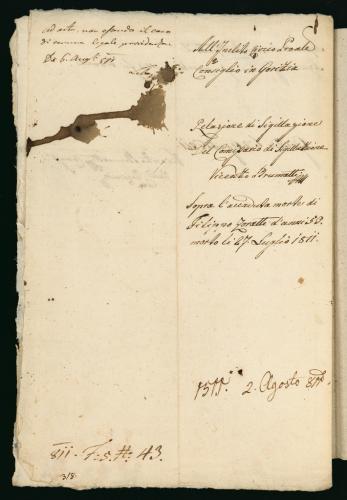 ad acta, non essendo il caso
di veruna legale providenza
Da 6. Aug. 811
All' Inclito Civico Prov.le
Consiglio in Gorizia
Relazione di Sigillazione
Del Comissario di Sigillazione
Vicenzo Brumatti
Sopra l'accaduta morte di
Filippo d'anni 50
morto li 27 Luglio 1811.
1511. 2. Agosto 811
811 - F: 5. N: 43.
3/8